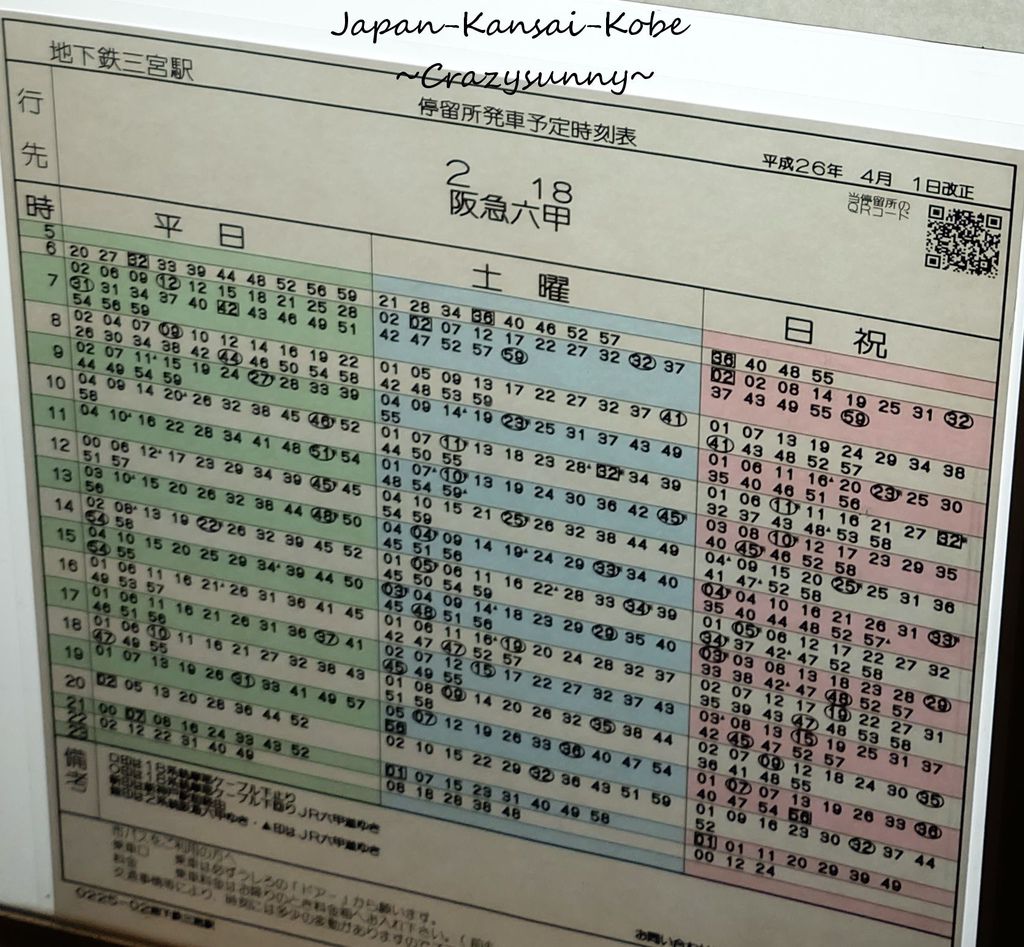 Japan-Kansai-Kobe
~Crazysunny~
地下鉄三宮駅
停留所発車予定時刻表
平成26年 4月 1日改正
行先
2 18
阪急六甲
当停留所の
QRコード
時 平日 土曜 日祝
5
6
20 27 32 33 39 44 48 52 56 59
7
02 06 09 12 12 15 18 21 25 28
31 31 34 37 40 42 43 46 49 51
54 56 59
8
02 04 07 09 10 12 14 16 19 22
26 30 34 38 42 44 46 50 54 58
9
02 07 11▲ 15 19 24 27 28 33 39
44 49 54 59
10
04 09 14 20▲ 26 32 38 45 46 52
58
11
04 10▲ 16 22 28 34 41 48 51 54
12
00 06 12▲ 17 23 29 34 39 45 45
51 57
13
03 10▲ 15 20 26 32 38 44 48 50
56
14
02 08▲ 13 19 22 26 32 39 45 52
54 58
15
04 10 15 20 25 29 34▲ 39 44 50
54 55
16
01 06 11 16 21▲ 26 31 36 41 45
49 53 57
17
01 06 11 16 21 26 31 36 37 41
46 51 56
18
01 06 10 11 16 21 27 32 38 43
47 49 55
19
01 07 13 19 26 31 33 41 49 57
20
02 05 13 20 28 36 44 52
21
00 07 08 16 24 33 43 52
22
02 12 22 31 40 49
23
21 28 34 36 40 46 52 57
02 02 07 12 17 22 27 32 32 37
42 47 52 57 59
01 05 09 13 17 22 27 32 37 41
42 48 53 59
04 09 14▲ 19 23 25 31 37 43 49
55
01 07 11 13 18 23 28▲ 32 34 39
44 50 55
01 07▲ 10 13 19 24 30 36 42 45
48 54 59▲
04 10 15 21 25 26 32 38 44 49
54 59
04 04 09 14 19▲ 24 29 33 34 40
45 51 56
01 05 06 11 16 22▲ 28 33 34 39
45 50 54 59
03 04 09 14▲ 18 23 29 29 35 40
45 48 51 56
01 06 11 16▲ 19 20 24 28 32 37
42 47 47 52 57
02 07 12 15 17 22 27 32 37 43
45 49 55
01 08 09 14 20 26 32 35 38 44
51 58
05 07 12 19 26 33 36 40 47 54
56
02 10 15 22 29 32 36 43 51 59
01 07 15 23 31 40 49 58
08 18 28 38 48
36 40 48 55
02 02 08 14 19 25 31 32
37 43 49 55 59
01 07 13 19 24 29 34 38
41 43 48 52 57
01 06 11 16▲ 20 23 25 30
35 40 46 51 56
01 06 11 11 16 21 27 32
32 37 43 48▲ 53 58
03 08 10 12 17 23 29 35
40 45 46 52 58
04▲ 09 15 20 25 25 31 36
41 47▲ 52 58
04 04 10 16 21 26 31 33
35 40 44 48 52 57▲
01 05 06 12 17 22 27 32
34 37 42▲ 47 52 58
03 03 08 13 18 23 28 29
33 38 42▲ 47 48 52 57
02 07 12 17 19 22 27 31
35 39 43 47 48 53 58
03▲ 08 13 15 19 25 31 37
42 45 47 52 57
02 07 09 12 18 24 30 35
36 41 48 55
01 07 07 13 19 26 33 36
40 47 54 56
01 09 16 23 30 32 37 44
52
01 01 11 20 29 39 49
00 12 24
備考
市バスをご利用の方へ
乗車口 乗車は必ずうしろの「ドア」から願います。
料金 乗車料金はお降りのとき料金箱へお入れ下さい。
0225-02地下鉄三宮駅